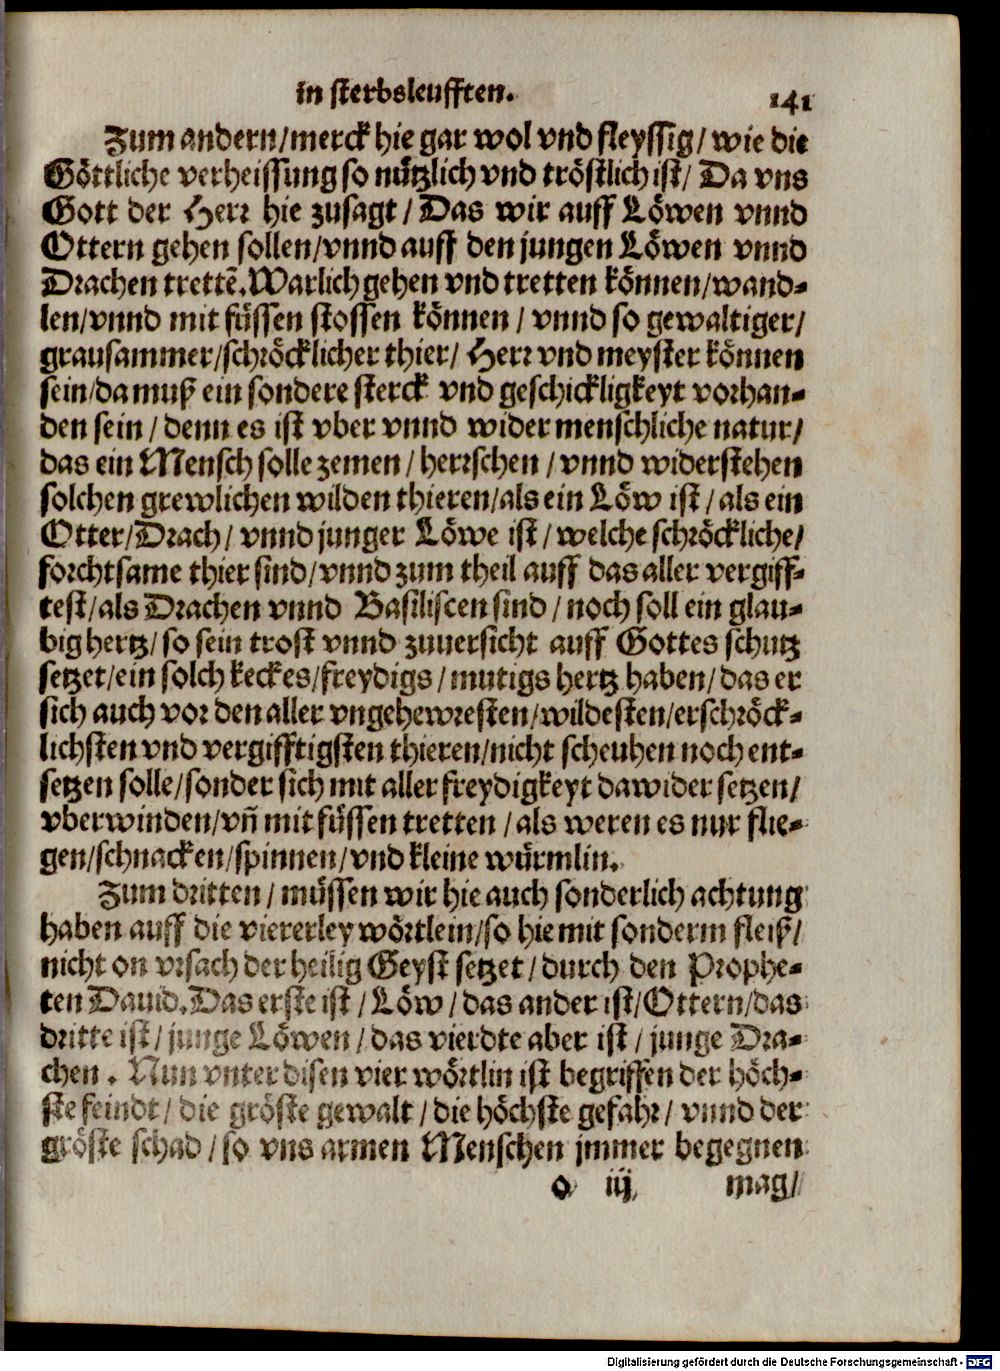 in sterbsleufften.
141
Zum andern/merck hie gar wol vnd fleyssig/ wie die
Göttliche verheissung so nützlich vnd tröstlich ist/ Da vns
Gott der Herr hie zusagt / Das wir auff Löwen vnnd
Ottern gehen sollen/vnnd auff den jungen Löwen vnnd
Drachen trettẽ. Warlich gehen vnd tretten können/wand-
len/vnnd mit füssen stossen können / vnnd so gewaltiger/
grausammer/schröcklicher thier/ Herr vnd meyster können
sein/da muß ein sondere sterck vnd geschickligkeyt vorhan-
den sein / denn es ist vber vnnd wider menschliche natur/
das ein Mensch solle zemen / herrschen / vnnd widerstehen
solchen grewlichen wilden thieren/als ein Löw ist / als ein
Otter/Drach/ vnnd junger Löwe ist / welche schröckliche/
forchtsame thier sind/vnnd zum theil auff das aller vergiff-
test/als Drachen vnnd Basiliscen sind / noch soll ein glau-
big hertz/ so sein trost vnnd zuuersicht auff Gottes schutz
setzet/ein solch keckes/freydigs / mutigs hertz haben/das er
sich auch vor den aller vngehewresten/wildesten/erschröck-
lichsten vnd vergifftigsten thieren/nicht scheuhen noch ent-
setzen solle/sonder sich mit aller freydigkeyt dawider setzen/
vberwinden/vñ mit füssen tretten / als weren es nur flie-
gen/schnacken/spinnen/vnd kleine würmlin.
Zum dritten / müssen wir hie auch sonderlich achtung
haben auff die viererley wörtlein/so hie mit sonderm fleiß/
nicht on vrsach der heilig Geyst setzet / durch den Prophe-
ten Dauid. Das erste ist / Löw / das ander ist/Ottern/das
dritte ist / junge Löwen / das vierdte aber ist / junge Dra-
chen. Nun vnter disen vier wörtlin ist begriffen der höch-
ste feindt/ die gröste gewalt / die höchste gefahr/ vnnd der
gröste schad / so vns armen Menschen jmmer begegnen
o iij
mag/
Digitalisierung gefördert durch die Deutsche Forschungsgemeinschaft - DFG